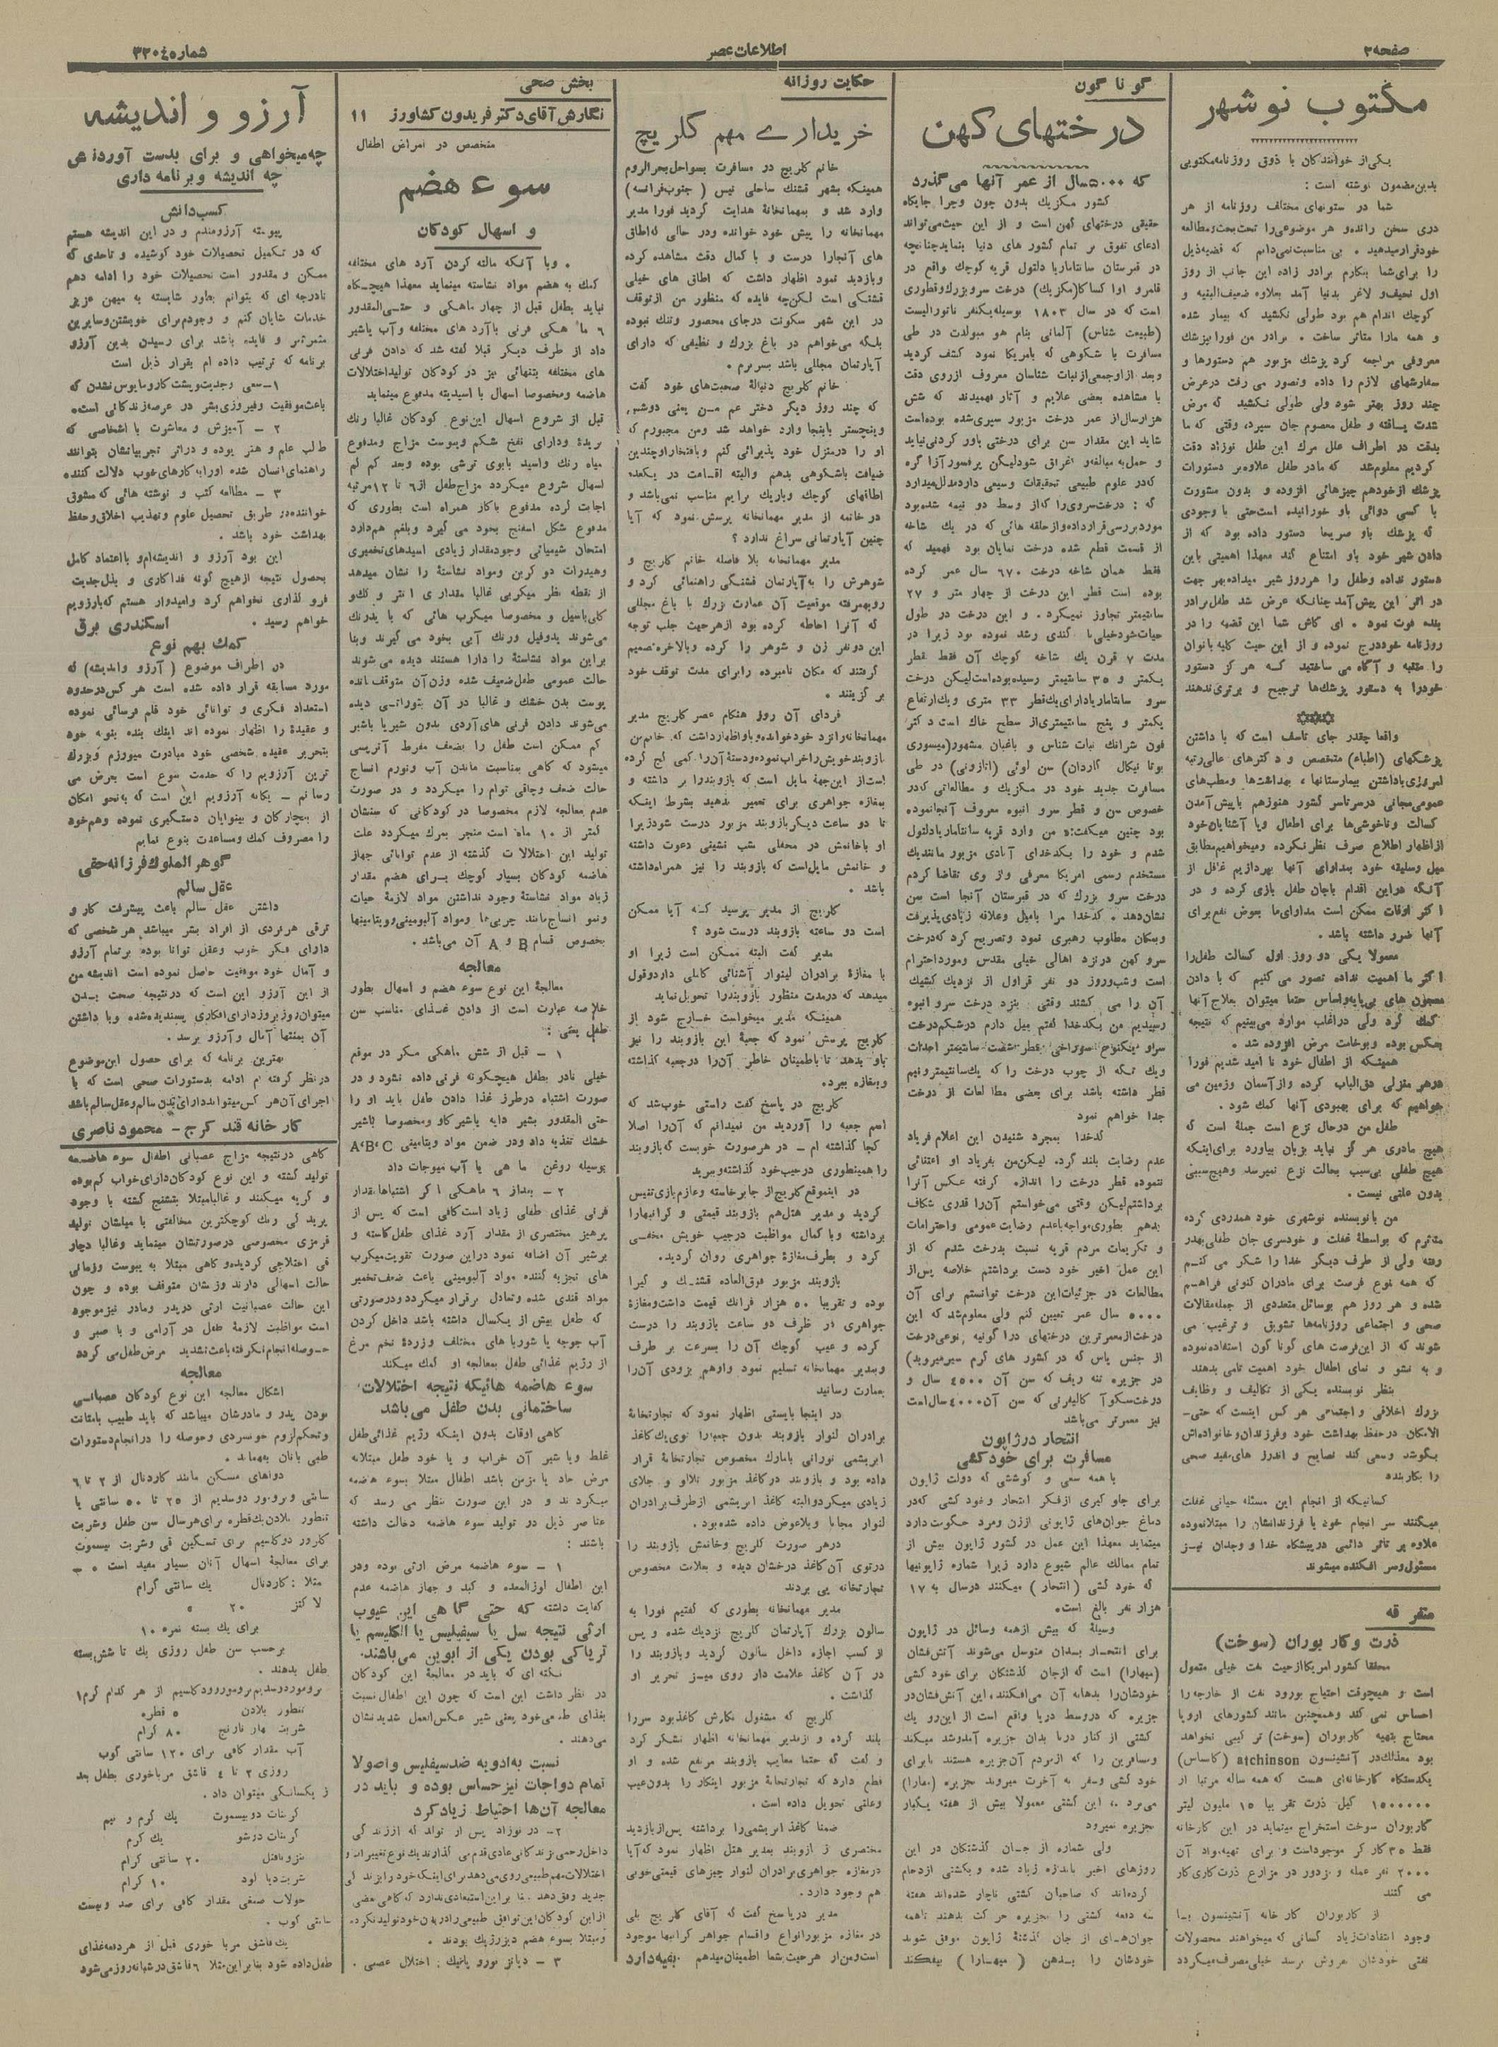 صفحه ۲
اطلاعات عصر
شماره ۳۳۰۴
مکتوب نوشهر
یکی از خوانندگان با ذوق روزنامه مکتوبی
بدین مضمون نوشته است :
شما در ستونهای مختلف روزنامه از هر
دری سخن رانده و هر موضوعی را تحت بحث و مطالعه
را برای شما بنگارم برادر زاده این جانب از روز
اول نحیف و لاغر بدنیا آمد بعلاوه ضعیف البنیه و
کوچک اندام هم بود طولی نکشید که بیمار شده
و همه مارا متأثر ساخت . برادر من فورا پزشک
معروفی مراجعه کرد پزشک مزبور هم دستورها و
سفارشهای لازم را داده و تصور می رفت در عرض
چند روز بهتر شود ولی طولی نکشید که مرض
شدت یافته و طفل معصوم جان سپرد، وقتی که ما
بدقت در اطراف علل مرگ این طفل نوزاد دقت
کردیم معلوم شد که مادر طفل علاوه بر دستورات
پزشک از خود هم چیزهائی افزوده و بدون مشورت
با کسی دوائی باو خورانیده است حتی با وجودی
که پزشک باو صریحا دستور داده بود که از
دادن شیر خود باو امتناع کند معهذا اهمیتی باین
دستور نداده و طفل را هر روز شیر میداده بهر جهت
در اثر این پیش آمد چنانکه عرض شد طفل برادر
بنده فوت نمود . ای کاش شما این قضیه را در
روزنامه خود درج نموده و از این حیث کلیه بانوان
را متنبه و آگاه می ساختید که هر گز دستور
خود را به دستور پزشک ها ترجیح و برتری ندهند
واقعا چقدر جای تأسف است که با داشتن
پزشگهای (اطباء) متخصص و دکترهای عالی رتبه
امروزی با داشتن بیمارستانها ، بهداشت ها و مطب های
عمومی مجانی در سرتاسر کشور هنوز هم با پیش آمدن
کسالت و ناخوشی ها برای اطفال و یا آشنایان خود
از اظهار اطلاع صرف نظر نکرده و میخواهیم مطابق
میل و سلیقه خود بمداوای آنها بپردازیم غافل از
آنکه در این اقدام با جان طفل بازی کرده و در
اکثر اوقات ممکن است مداوای ما بعوض نفع برای
آنها ضرر داشته باشد .
معمولا یکی دو روز اول کسالت طفل را
اکثر ما اهمیت نداده تصور می کنیم که با دادن
معجون های بی پایه و اساس حتما میتوان بعلاج آنها
کمک کرد ولی در اغلب موارد می بینیم که نتیجه
بعکس بوده و بوخامت مرض افزوده شد .
همینکه از اطفال خود نا امید شدیم فورا
هر منزلی دق الباب کرده و از آسمان و زمین می
خواهیم که برای بهبودی آنها کمک شود .
طفل من درحال نزع است جمله است که
هیچ مادری هر گز نباید بزبان بیاورد برای اینکه
هیچ طفلی بی سبب بحالت نزع نمیرسد و هیچ سببی
بدون علتی نیست .
من با نویسنده نوشهری خود همدردی کرده
متأثرم که بواسطه غفلت و خودسری جان طفلی بهدر
رفته ولی از طرف دیگر خدا را شکر می کنم
که همه نوع فرصت برای مادران کنونی فراهم
شده و هر روز هم بوسائل متعددی از جمله مقالات
صحی و اجتماعی روزنامه ها تشویق و ترغیب می
شوند که از این فرصت های گوناگون استفاده نموده
و به نشو و نمای اطفال خود اهمیت تامی بدهند
بنظر نویسنده یکی از تکالیف و وظایف
بزرگ اخلاقی و اجتماعی هر کس اینست که حتی
الامکان در حفظ بهداشت خود و فرزندان و خانواده اش
بکوشد و سعی کند نصایح و اندرز های مفید صحی
را بکار بندد
کسانیکه از انجام این مسئله حیاتی غفلت
میکنند سر انجام خود یا فرزندانشان را مبتلا نموده
علاوه بر تأثر دائمی در پیشگاه خدا و وجدان نیز
مسئول و سر افکنده میشوند
متفرقه
ذرت و کار بوران (سوخت)
محققا کشور امریکا از حیث نفت خیلی متمول
است و هیچوقت احتیاج بورود نفت از خارجه را
احساس نمی کند و همچنین مانند کشورهای اروپا
محتاج بتهیه کاربوران (سوخت) ترکیبی نخواهد
بود معذلک در آتشینسون atchinson (کانساس)
یکدستگاه کارخانه ای هست که همه ساله مرتبا از
۱۵۰۰۰۰۰ کیل ذرت تقریبا ۱۵ ملیون لیتر
کاربوران سوخت استخراج مینماید در این کارخانه
فقط ۳۵ کارگر موجود است و برای تهیه مواد آن
۲۰۰۰ نفر عمله و مزدور در مزارع ذرت کاری کار
می کنند
از کاربوران کارخانه آتشینسون با
وجود انتقادات زیاد کسانی که میخواهند محصولات
نفتی خودشان بفروش برسد خیلی مصرف میگردد
گو نا گون
درختهای کهن
که ۵۰۰۰ سال از عمر آنها می گذرد
کشور مکزیک بدون چون و چرا جایگاه
حقیقی درختهای کهن است و از این حیث می تواند
ادعای تفوق بر تمام کشور های دنیا بنماید چنانچه
در قبرستان سانتاماریا دلتول قریه کوچک واقع در
قلمرو اوا کساکا (مکزیک) درخت سرو بزرک و قطوری
است که در سال ۱۸۰۳ بوسیله یکنفر ناتورالیست
(طبیعت شناس) آلمانی بنام هو مبولدت در طی
مسافرت با شکوهی که بامریکا نمود کشف گردید
و بعد از او جمعی از نبات شناسان معروف از روی دقت
با مشاهده بعضی علایم و آثار فهمیدند که شش
هزار سال از عمر درخت مزبور سپری شده بوده است
شاید این مقدار سن برای درختی باور کردنی نباید
و حمل به مبالغه و اغراق شود لیکن پرفسور آزا گره
که در علوم طبیعی تحقیقات وسیعی دارد مدلل میدارد
که : درخت سروی را که از وسط دو نیمه شده بود
مورد بررسی قرار داده و از حلقه هائی که در یک شاخه
از قسمت قطع شده درخت نمایان بود فهمید که
فقط همان شاخه درخت ۶۷۰ سال عمر کرده
بوده است قطر این درخت از چهار متر و ۲۷
سانتیمتر تجاوز نمیکرد . و این درخت در طول
مدت ۷ قرن یک شاخه کوچک آن فقط قطر
یکمتر و ۳۵ سانتیمتر رسیده بوده است لیکن درخت
سرو سانتاماریا دارای یک قطر ۳۳ متری و یک ارتفاع
یکمتر و پنج سانتیمتری از سطح خاک است دکتر
فون شرانک نبات شناس و باغبان مشهور (میسوری
بوتانیکال گاردان) سن لوئی (اتازونی) در طی
مسافرت جدید خود در مکزیک و مطالعاتی که در
خصوص سن و قطر سرو انبوه معروف آنجا نموده
بود چنین میگفت: من وارد قریه سانتاماریا دلتول
شدم و خود را بکدخدای آبادی مزبور مانند یک
مستخدم رسمی امریکا معرفی و از وی تقاضا کردم
درخت سرو بزرک که در قبرستان آنجا است بمن
نشان دهد . کدخدا مرا بامیل و علاقه زیادی پذیرفت
و بمکان مطلوب رهبری نمود و تصریح کرد که درخت
سرو کهن در نزد اهالی خیلی مقدس و مورد احترام
است و شب و روز دو نفر قراول از نزدیک کشیک
آن را می کشند وقتی بنزد درخت سرو انبوه
رسیدیم من بکدخدا گفتم میل دارم در شکم درخت
ویک تکه از چوب درخت را که یک سانتیمتر و نیم
قطر داشته باشد برای بعضی مطالعات از درخت
جدا خواهم نمود
کدخدا بمجرد شنیدن این اعلام فریاد
عدم رضایت بلند کرد. لیکن من بفریاد او اعتنائی
ننموده قطر درخت را اندازه گرفته عکس آنرا
برداشتم لیکن وقتی می خواستم آن را قدری شکاف
بدهم بطوری مواجه با عدم رضایت عمومی و احترامات
و تکریمات مردم قریه نسبت بدرخت شدم که از
این عمل اخیر خود دست برداشتم خلاصه پس از
مطالعات در جزئیات این درخت توانستم برای آن
۵۰۰۰ سال عمر تعیین کنم ولی معلوم شد که این
از جنس یاس که در کشور های گرم سیر میروید)
در جزیره تنه ریف که سن آن ۴۵۰۰ سال و
درخت سکوآ کالیفرنی که سن آن ۴۰۰۰ سال است
نیز معمرتر می باشد
انتحار در ژاپون
مسافرت برای خودکشی
با همه سعی و کوششی که دولت ژاپون
برای جلوگیری از فکر انتحار و خود کشی که در
دماغ جوان های ژاپونی از زن و مرد حکومت دارد
مینماید معهذا این عمل در کشور ژاپون بیش از
تمام ممالک عالم شیوع دارد زیرا شماره ژاپونیها
که خود کشی (انتحار) میکنند در سال به ۱۷
هزار نفر بالغ است.
وسیله که بیش از همه وسائل در ژاپون
برای انتحار بدان متوسل می شوند آتش فشان
(میهارا) است که از جان گذشتگان برای خود کشی
خودشان را بدهانه آن می افکنند، این آتش فشان در
جزیره که در وسط دریا واقع است از این رو یک
کشتی از کنار دریا بدان جزیره آمد و شد میکند
و مسافرین را که از مردم آن جزیره هستند یا برای
خود کشی و سفر به آخرت میروند جزیره (میهارا)
می برد ، این کشتی معمولا بیش از هفته یکبار
جزیره نمیرود
ولی شماره از جان گذشتگان در این
روزهای اخیر باندازه زیاد شده و بکشتی ازدحام
کرده اند که صاحبان کشتی ناچار شده اند هفته
سه دفعه کشتی را بجزیره حرکت بدهند تا همه
جوان های از جان گذشته ژاپون موفق شوند
خودشان را بدهن (میهارا) بیفکنند
حکایت روزانه
خریداری مهم کلریج
خانم کلریج در مسافرت بسواحل بحرالروم
همینکه بشهر قشنک ساحلی نیس (جنوب فرانسه)
وارد شد و بمهمانخانه هدایت گردید فورا مدیر
مهمانخانه را پیش خود خوانده و در حالی که اطاق
های آنجا را درست و با کمال دقت مشاهده کرده
و بازدید نمود اظهار داشت که اطاق های خیلی
قشنگی است لکن چه فایده که منظور من از توقف
در این شهر سکونت در جای محصور و تنک نبوده
بلکه می خواهم در باغ بزرک و نظیفی که دارای
آپارتمان مجللی باشد بسر برم .
خانم کلریج دنباله صحبت های خود گفت
که چند روز دیگر دختر عم من یعنی دوشس
وینچستر باینجا وارد خواهد شد و من مجبورم که
او را در منزل خود پذیرائی کنم و بافتخار او چندین
ضیافت باشکوهی بدهم و البته اقامت در یک عده
اطاقهای کوچک و باریک برایم مناسب نمی باشد و
در خاتمه از مدیر مهمانخانه پرسش نمود که آیا
چنین آپارتمانی سراغ ندارد ؟
مدیر مهمانخانه بلا فاصله خانم کلریج و
شوهرش را به آپارتمان قشنگی راهنمائی کرد و
رویهمرفته موقعیت آن عمارت بزرک با باغ مجللی
که آنرا احاطه کرده بود از هر جهت جلب توجه
این دو نفر زن و شوهر را کرده و بالاخره تصمیم
گرفتند که مکان نامبرده را برای مدت توقف خود
بر گزینند .
فردای آن روز هنگام عصر کلریج مدیر
مهمانخانه را نزد خود خوانده و باو اظهار داشت که خانم من
بازو بند خویش را خراب نموده و دسته آن را کمی کج کرده
است از این جهة مایل است که بازوبند را بر داشته و
بمغازه جواهری برای تعمیر بدهید بشرط اینکه
تا دو ساعت دیگر بازوبند مزبور درست شود زیرا
او با خانمش در محفلی شب نشینی دعوت داشته
و خانمش مایل است که بازوبند را نیز همراه داشته
باشد .
کلریج از مدیر پرسید که آیا ممکن
است دو ساعته بازوبند درست شود ؟
مدیر گفت البته ممکن است زیرا او
با مغازه برادران لنوار آشنائی کاملی دارد و قول
میدهد که در مدت منظور بازوبند را تحویل نماید
همینکه مدیر میخواست خارج شود از
کلریج پرسش نمود که جعبه این بازوبند را نیز
باو بدهد تا با اطمینان خاطر آن را در جعبه گذاشته
و بمغازه ببرد.
کلریج در پاسخ گفت راستی خوب شد که
اسم جعبه را آوردید من نمیدانم که آن را اصلا
کجا گذاشته ام - در هر صورت خوبست که بازوبند
را همینطوری در جیب خود گذاشته و ببرید
در اینموقع کلریج از جا برخاسته و عازم بازی تنیس
گردید و مدیر هتل هم بازوبند قیمتی و گرانبها را
برداشته و با کمال مواظبت در جیب خویش مخفی
کرد و بطرف مغازه جواهری روان گردید.
بازوبند مزبور فوق العاده قشنک و گیرا
بوده و تقریبا ۵۰ هزار فرانک قیمت داشت و مغازه
جواهری در ظرف دو ساعت بازوبند را درست
کرده و عیب کوچک آن را بسرعت بر طرف
و بمدیر مهمانخانه تسلیم نمود و او هم بزودی آن را
بعمارت رسانید
در اینجا بایستی اظهار نمود که تجارتخانه
برادران لنوار بازوبند بدون جعبه را توی یک کاغذ
ابریشمی نورانی با مارک مخصوص تجارتخانه قرار
داده بود و بازوبند در کاغذ مزبور تلالؤ و جلای
زیادی میکرد و البته کاغذ ابریشمی از طرف برادران
لنوار مجانا و بلاعوض داده شده بود.
در هر صورت کلریج و خانمش بازوبند را
در توی آن کاغذ درخشان دیده و بعلامت مخصوص
تجارتخانه پی بردند
مدیر مهمانخانه بطوری که گفتیم فورا به
سالون بزرک آپارتمان کلریج نزدیک شده و پس
از کسب اجازه داخل سالون گردید و بازوبند را
در آن کاغذ علامت دار روی میز تحریر او
گذاشت .
کلریج که مشغول نگارش کاغذ بود سر را
بلند کرده و از مدیر مهمانخانه اظهار تشکر کرد
و گفت که حتما معایب بازوبند مرتفع شده و او
قطع دارد که تجارتخانه مزبور اینکار را بدون عیب
و علتی تحویل داده است .
ضمنا کاغذ ابریشمی را برداشته پس از بازدید
مختصری از بازوبند بمدیر هتل اظهار نمود که آیا
در مغازه جواهری برادران لنوار چیزهای قیمتی خوبی
هم وجود دارد .
مدیر در پاسخ گفت که آقای کلریج بلی
در مغازه مزبور انواع و اقسام جواهر گرانبها موجود
است و من از هر حیث بشما اطمینان میدهم . بقیه دارد
بخش صحی
نگارش آقای دکتر فریدون کشاورز ۱۱
متخصص در امراض اطفال
سوء هضم
و اسهال کودکان
و با آنکه مالته کردن آرد های مختلفه
کمک به هضم مواد نشاسته مینماید معهذا هیچگاه
نباید بطفل قبل از چهار ماهگی و حتی المقدور
۶ ماهگی فرنی با آرد های مختلفه و آب یا شیر
داد از طرف دیگر قبلا گفته شد که دادن فرنی
های مختلفه بتنهائی نیز در کودکان تولید اختلالات
هاضمه و مخصوصا اسهال با اسیدیته مدفوع مینماید
قبل از شروع اسهال این نوع کودکان غالبا رنک
پریده و دارای نفخ شکم و یبوست مزاج و مدفوع
سیاه رنک و اسید با بوی ترشی بوده و بعد کم کم
اسهال شروع میگردد مزاج طفل از ۶ تا ۱۲ مرتبه
اجابت کرده مدفوع با گاز همراه است بطوری که
مدفوع شکل اسفنج بخود می گیرد و بلغم هم دارد
امتحان شیمیائی وجود مقدار زیادی اسیدهای تخمیری
وهیدرات دو کربن و مواد نشاسته را نشان میدهد
بر این مواد نشاسته را دارا هستند دیده می شوند
حالت عمومی طفل ضعیف شده وزن آن متوقف مانده
می شوند دادن فرنی های آردی بدون شیر یا با شیر
کم ممکن است طفل را بضعف مفرط آترپسی
حالت ضعف و چاقی توام را میگردد و در صورت
عدم معالجه لازم مخصوصا در کودکانی که سنشان
کمتر از ۱۰ ماه است منجر بمرک میگردد علت
تولید این اختلالات گذشته از عدم توانائی جهاز
هاضمه کودکان بسیار کوچک برای هضم مقدار
زیاد مواد نشاسته وجود نداشتن مواد لازمه حیات
و نمو انساج مانند چربی ها و مواد آلبومینی و ویتامینها
بخصوص قسم A و B آن می باشد .
معالجه
معالجه این نوع سوء هضم و اسهال بطور
خلاصه عبارت است از دادن غذای مناسب سن
طفل یعنی :
۱ – قبل از شش ماهگی مگر در موقع
خیلی نادر بطفل هیچگونه فرنی داده نشود و در
صورت اشتباه در طرز غذا دادن طفل باید او را
حتی المقدور بشیر دایه یا شیر گاو و مخصوصا با شیر
خشک تغذیه داد و در ضمن مواد ویتامینی A،B،C
بوسیله روغن ماهی یا آب میوجات داد
۲ – بعد از ۶ ماهگی اگر اشتباها مقدار
فرنی غذای طفلی زیاد است کافی است که پس از
پرهیز مختصری از مقدار آرد غذای طفل کاسته و
بر شیر آن اضافه نمود در این صورت تقویت میکرب
های تجزیه کننده مواد آلبومینی باعث ضعف تخمیر
مواد قندی شده و تعادل برقرار میگردد و در صورتی
که طفل بیش از یکسال داشته باشد داخل کردن
آب جوجه یا شوربا های مختلف و زرده تخم مرغ
از رژیم غذائی طفل بمعالجه او کمک میکند
سوء هاضمه هائیکه نتیجه اختلالات
ساختمانی بدن طفل می باشد
گاهی اوقات بدون اینکه رژیم غذائی طفل
غلط و یا شیر آن خراب و یا خود طفل مبتلا به
مرض حاد یا مزمن باشد اطفال مبتلا بسوء هاضمه
میگردند و در این صورت بنظر می رسد که
عناصر ذیل در تولید سوء هاضمه دخالت داشته
باشند :
۱ – سوء هاضمه مرض ارثی بوده و در
این اطفال لوزالمعده و کبد و جهاز هاضمه عدم
کفایت داشته که حتی گاهی این عیوب
ارثی نتیجه سل یا سیفیلیس یا الکلیسم یا
تریاکی بودن یکی از ابوین می باشند.
نکته ای که باید در معالجه این کودکان
در نظر داشت این است که چون این اطفال نسبت
بغذای طبیعی خود یعنی شیر عکس العمل شدید نشان
می دهند .
نسبت به ادویه ضد سیفلیس و اصولا
تمام دواجات نیز حساس بوده و باید در
معالجه آن ها احتیاط زیاد کرد
۲- در نوزاد پس از تولد که از زندگی
داخل رحمی بزندگانی عادی قدم می گذارند یک نوع تغییرات و
از این کودکان این توافق طبیعی را در بدن خود تولید نکرده
و مبتلا بسوء هضم دیررژیک بودند .
۳ – دیاتز نوروپاتیک : اختلال عصبی .
آرزو و اندیشه
چه میخواهی و برای بدست آوردنش
چه اندیشه و برنامه داری
کسب دانش
پیوسته آرزومندم و در این اندیشه هستم
که در تکمیل تحصیلات خود کوشیده و تا حدی که
ممکن و مقدور است تحصیلات خود را ادامه دهم
تا درجه ای که بتوانم بطور شایسته به میهن عزیز
خدمات شایان کنم و وجودم برای خویشتن و سایرین
مثمر ثمر و فایده باشد برای رسیدن بدین آرزو
برنامه که ترتیب داده ام بقرار ذیل است
۱- سعی و جدیت و پشت کار و مایوس نشدن که
باعث موفقیت و فیروزی بشر در عرصه زندگانی است.
۲ – آمیزش و معاشرت با اشخاصی که
طالب علم و هنر بوده و در اثر تجربیاتشان بتوانند
راهنمای انسان شده او را به کارهای خوب دلالت کنند.
۳ – مطالعه کتب و نوشته هائی که مشوق
خواننده در طریق تحصیل علوم و تهذیب اخلاق و حفظ
بهداشت خود باشد .
این بود آرزو و اندیشه ام و با اعتماد کامل
بحصول نتیجه از هیچ گونه فداکاری و بذل جدیت
فرو گذاری نخواهم کرد و امیدوار هستم که بآرزویم
خواهم رسید . اسکندری برق
کمک بهم نوع
در اطراف موضوع (آرزو و اندیشه) که
مورد مسابقه قرار داده شده است هر کس در حدود
استعداد فکری و توانائی خود قلم فرسائی نموده
و عقیده را اظهار نموده اند اینک بنده بنوبه خود
بتحریر عقیده شخصی خود مبادرت میورزم و بزرک
ترین آرزویم را که خدمت بنوع است بعرض می
رسانم – یگانه آرزویم این است که به نحو امکان
از بیچارگان و بینوایان دستگیری نموده و هم خود
را مصروف کمک و مساعدت بنوع نمایم
گوهر الملوک فرزانه حقی
عقل سالم
داشتن عقل سالم باعث پیشرفت کار و
ترقی هر فردی از افراد بشر میباشد هر شخصی که
دارای فکر خوب و عقل توانا بوده بر تمام آرزو
و آمال خود موفقیت حاصل نموده است اندیشه من
از این آرزو این است که در نتیجه صحت بدن
میتوان روز بروز دارای افکاری پسندیده شده و با داشتن
آن بمنتها آمال و آرزو برسد .
بهترین برنامه که برای حصول این موضوع
در نظر گرفته ام ادامه بدستورات صحی است که با
اجرای آن هر کس میتواند دارای بدن سالم و عقل سالم باشد
کارخانه قند کرج - محمود ناصری
گاهی در نتیجه مزاج عصبانی اطفال سوء هاضمه
تولید گشته و این نوع کودکان دارای خواب کم بوده
و گریه میکنند و غالبا مبتلا بتشنج گشته با وجود
پریدگی رنک کوچکترین مخالفتی با میلشان تولید
قرمزی مخصوصی در صورتشان مینماید و غالبا دچار
قی اختلاجی گردیده و گاهی مبتلا به یبوست و زمانی
حالت اسهالی دارند وزنشان متوقف بوده و چون
این حالت عصبانیت ارثی در پدر و مادر نیز موجود
است مواظبت لازمه طفل در آرامی و با صبر و
حوصله انجام نگرفته باعث تشدید مرض طفل می گردد
معالجه
اشکال معالجه این نوع کودکان عصبانی
بودن پدر و مادرشان میباشد که باید طبیب با متانت
و تحکم لزوم خونسردی و حوصله را در انجام دستورات
طبی بانان بفهماند .
دواهای مسکن مانند گاردنال از ۲ تا ۶
سانتی و برومور دوسدیم از ۲۵ تا ۵۰ سانتی یا
تنطور بلادن یک قطره برای هر سال سن طفل و شربت
کلرور دو کلسیم برای تسکین قی و شربت بیسموت
برای معالجه اسهال آنان بسیار مفید است .
مثلا : گاردنال یک سانتی گرام
لاکتز ۲۰ »
برای یک بسته نمره ۱۰
برحسب سن طفل روزی یک تا شش بسته
بطفل بدهند .
تنطور بلادن ۵ قطره
شربت بهار نارنج ۸۰ گرام
آب مقدار کافی برای ۱۲۰ سانتی کوب
روزی ۲ تا ۴ قاشق مرباخوری بطفل بعد
از یکسالگی میتوان داد .
کربنات دو بیسموت یک گرم و نیم
کربنات دو شو یک گرم
بنزونافتل ۲۰ سانتی گرام
شربت دیا کود ۱۰ گرام
جولاب صمغی مقدار کافی برای صد و بیست
سانتی کوب .
یک قاشق مربا خوری قبل از هر دفعه غذای
طفل داده شود بنابر این مثلا ۶ قاشق در شبانه روز می شود